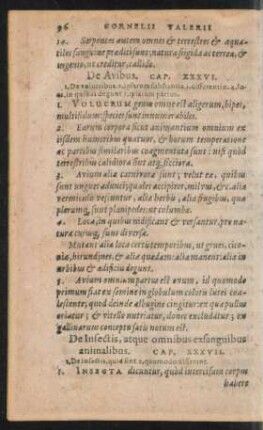 96 CORNELII VALERII
10. Serpentes autem omnes & terrestres & aqua-
tiles sanguine præditi sunt; natura frigida ac terrea, &
ingenio, ut creditur, callido.
De Avibus. CAP. XXXVI.
1. De volucribus. 2. ipsarum substantia. 3. differentia. 4. lo-
ca, in quibus degunt. 5. omnium partus.
1. VOLUCRUM genus omne est aligerum, bipes,
multifidum: species sunt innumerabiles.
2. Earum corpora sicut animantium omnium ex
iisdem humoribus quatuor, & horum temperatione
ac partibus similaribus coagmentata sunt: nisi quòd
terrestribus calidiora sint atque sicciora.
3. Avium aliæ carnivoræ sunt; velut eæ, quibus
sunt ungues adunci, aquilæ, accipiter, milvus, &c. aliæ
vermiculis vescuntur, aliæ baccis, aliæ frugibus, quæ
plerumque sunt plumipedes: ut columbæ.
4. Loca, in quibus nidificant & versantur, pro na-
tura cujusque sunt diversa.
Mutant alia loca certis temporibus, ut grues, cico-
niæ, hirundines, & aliæ quædam: aliæ manent: aliæ in
urbibus & ædificiis degunt.
5. Avium omnium partus est ovum, id quomodo
primum fiat ex semine in globulum coloris lutei coa-
lescente, quod deinde albugine cingitur: ex qua pullus
oriatur; & vitello nutriatur, donec excludatur; ex
gallinarum conceptu satis notum est.
De Insectis, atque omnibus exsanguibus
animalibus. CAP. XXXVII.
1. De insectis, quæ sint. 2. quomodo differant.
1. INSECTA dicuntur, quòd intercisum corpus
habere